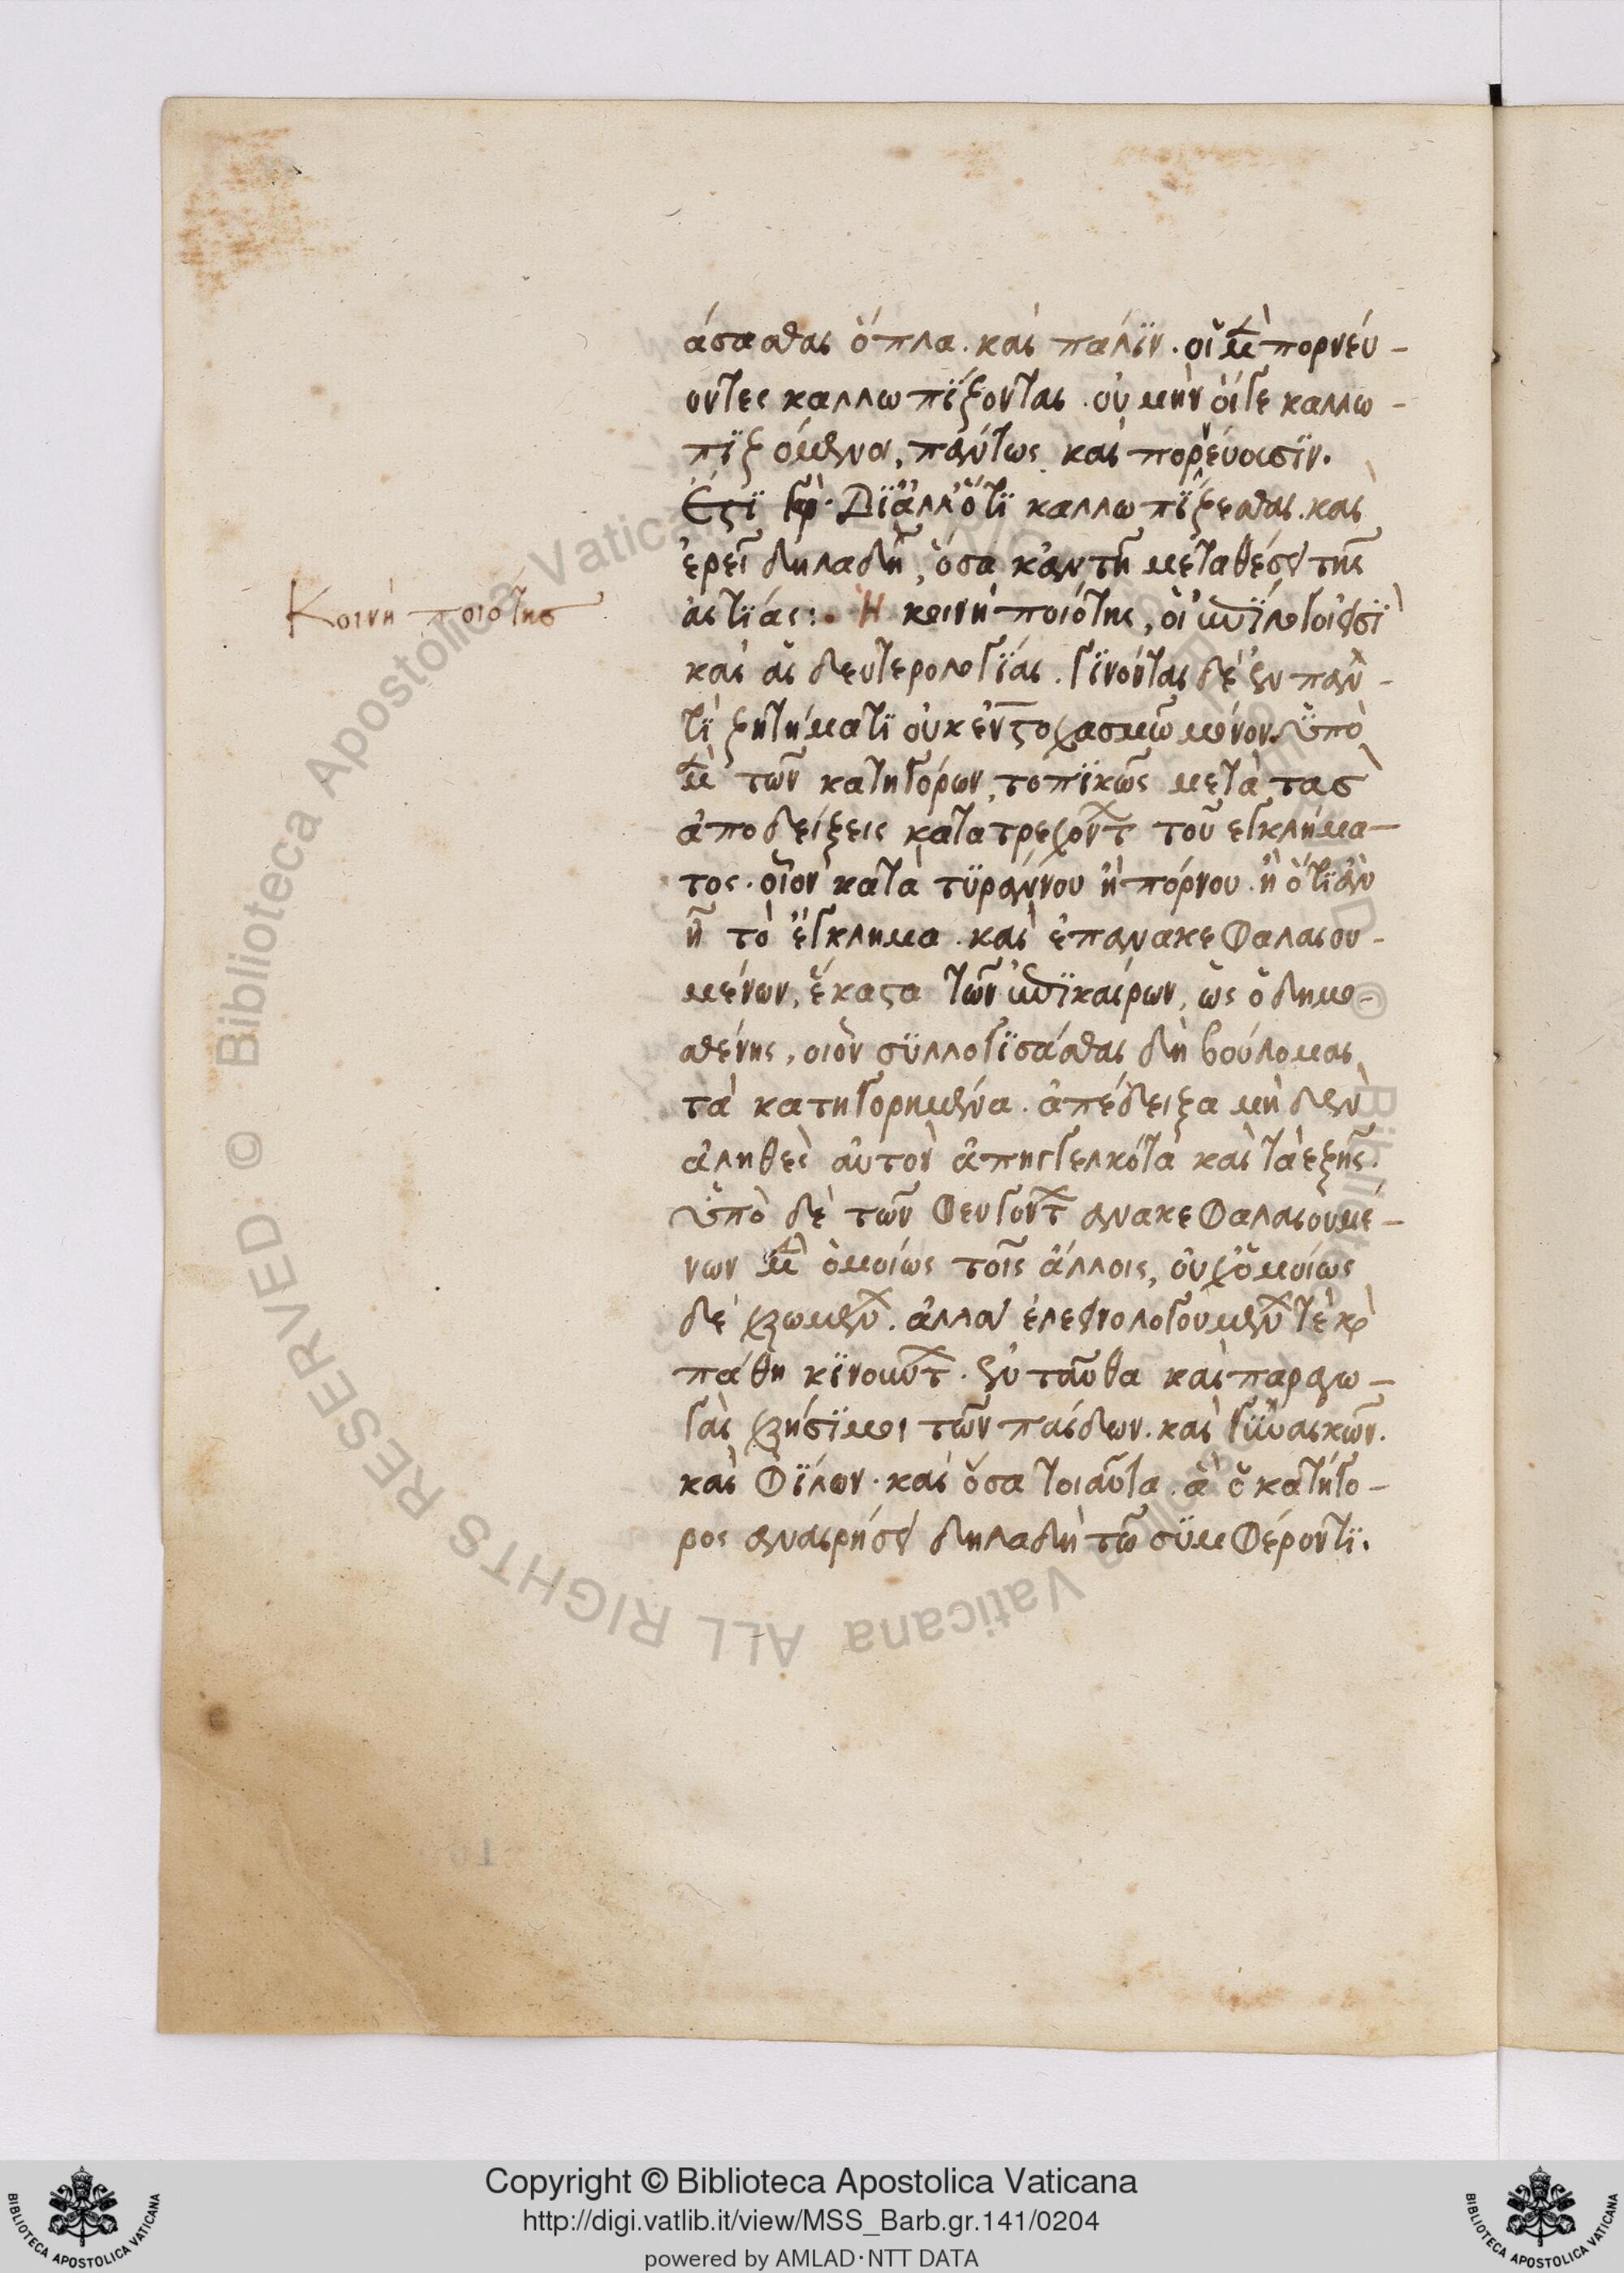 άσασθαι ὅπλα. καὶ πάλϊν. οἱ μὲν πορνέυ-
οντες καλλωπΐζονται. οὐ μὴν ὁίγε καλλω-
πϊζόμενοι, πάντως καὶ πορνέυουσϊν.
Ἔστϊ γὰρ. Δϊἄλλ' ὅτϊ καλλωπΐζεσθαι. καὶ
ἐρεῖ δηλαδὴ, ὅσα κἀν τῆ μεταθέσει τῆς
αἰτΐας:
Κοινή ποιότησ
Ἡ κοινὴ ποιότης, οἱ ἐπΐλογοι εἰσϊ
καὶ αἱ δευτερολογΐαι. γΐνονται δὲ ἐν παν-
τὶ ζητήματϊ οὐκ ἐν στοχασμῶ μόνον. ὑπὸ
μὲν τῶν κατηγόρων, τοπϊκῶς μετὰ τὰσ
ἀποδείξεις κατατρεχόντων τοῦ ἐγκλήμα-
τος. οἷον κατὰ τϋράννου ἢ πόρνου. ἢ ὅτϊ ἂν
ἦ τὸ ἔγκλημα. καὶ ἐπανακεφαλαιου-
μένων, ἕκαστα τῶν ἐπϊκαίρων, ὡς ὁ δημο-
σθένης, οἷον σϋλλογϊσάσθαι δὴ βούλομαι
τὰ κατηγορημένα. ἀπέδειξα μὴδὲν
ἀληθὲς αὐτὸν ἀπηγγελκότα καὶ τὰ ἑξῆς.
ὑπὸ δὲ τῶν φευγόντων ἀνακεφαλαιουμέ-
νων μὲν ὁμοίως τοῖς ἄλλοις, οὐχ' ὁμοίως
δὲ χρωμένων. ἀλλ' ἐλεεινολογουμένων τὲ καὶ
πάθη κϊνούντων. ἐνταῦθα καὶ παραγω-
γαὶ χρήσϊμοι τῶν παίδων. καὶ γϋναικῶν.
καὶ φΐλων. καὶ ὅσα τοιαῦτα. ἃ ὁ κατήγο-
ρος ἀναιρήσει δηλαδὴ τῶ σϋμφέροντϊ.
Copyright © Biblioteca Apostolica Vaticana
http://digi.vatlib.it/view/MSS_Barb.gr.141/0204
powered by AMLAD·NTT DATA
BIBLIOTECA APOSTOLICA VATICANA
BIBLIOTECA APOSTOLICA VATICANA